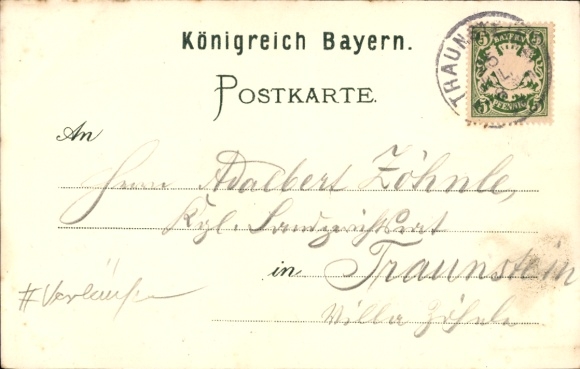 Königreich Bayern.
TRAUN
5 BAYERN 5
5 PFENNIG 5
POSTKARTE.
An
Herrn Adalbert Zöhnle,
Kgl. Landgerichtsrat
in Traunstein
Villa Zöhnle